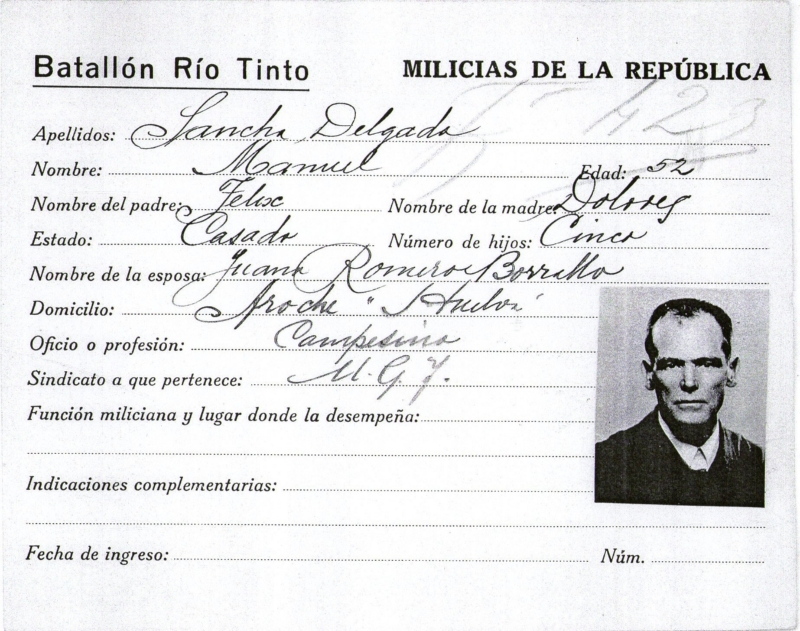 Batallón Río Tinto MILICIAS DE LA REPÚBLICA
5 423
Apellidos: Sancha Delgado
Nombre: Manuel Edad: 52
Nombre del padre: Felix Nombre de la madre: Dolores
Estado: Casado Número de hijos: Cinco
Nombre de la esposa: Juana Romero Borrallo
Domicilio: Aroche "Huelva"
Oficio o profesión: Campesino
Sindicato a que pertenece: U.G.T.
Función miliciana y lugar donde la desempeña:
Indicaciones complementarias:
Fecha de ingreso: Núm.